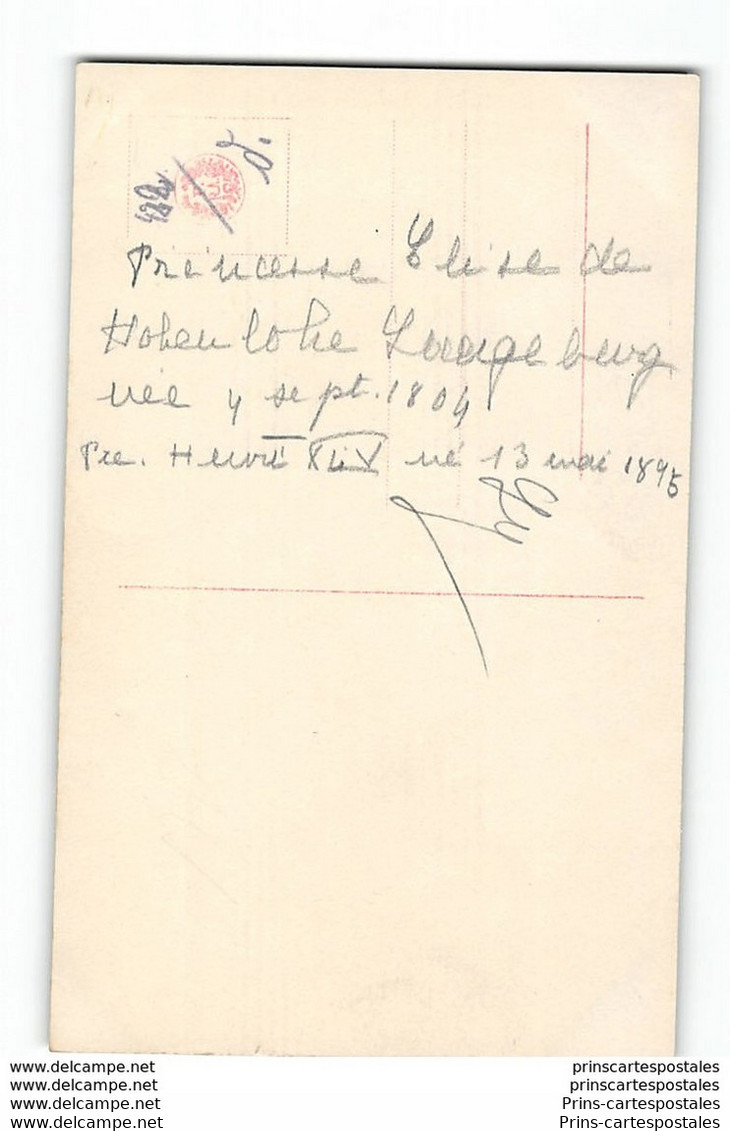 Princesse Elise de
Hohenlohe Langeburg
née 4 sept. 1864
Pce. Henri XLV né 13 mai 1895
www.delcampe.net
www.delcampe.net
www.delcampe.net
www.delcampe.net
prinscartespostales
prinscartespostales
Prins-cartespostales
Prins-cartespostales